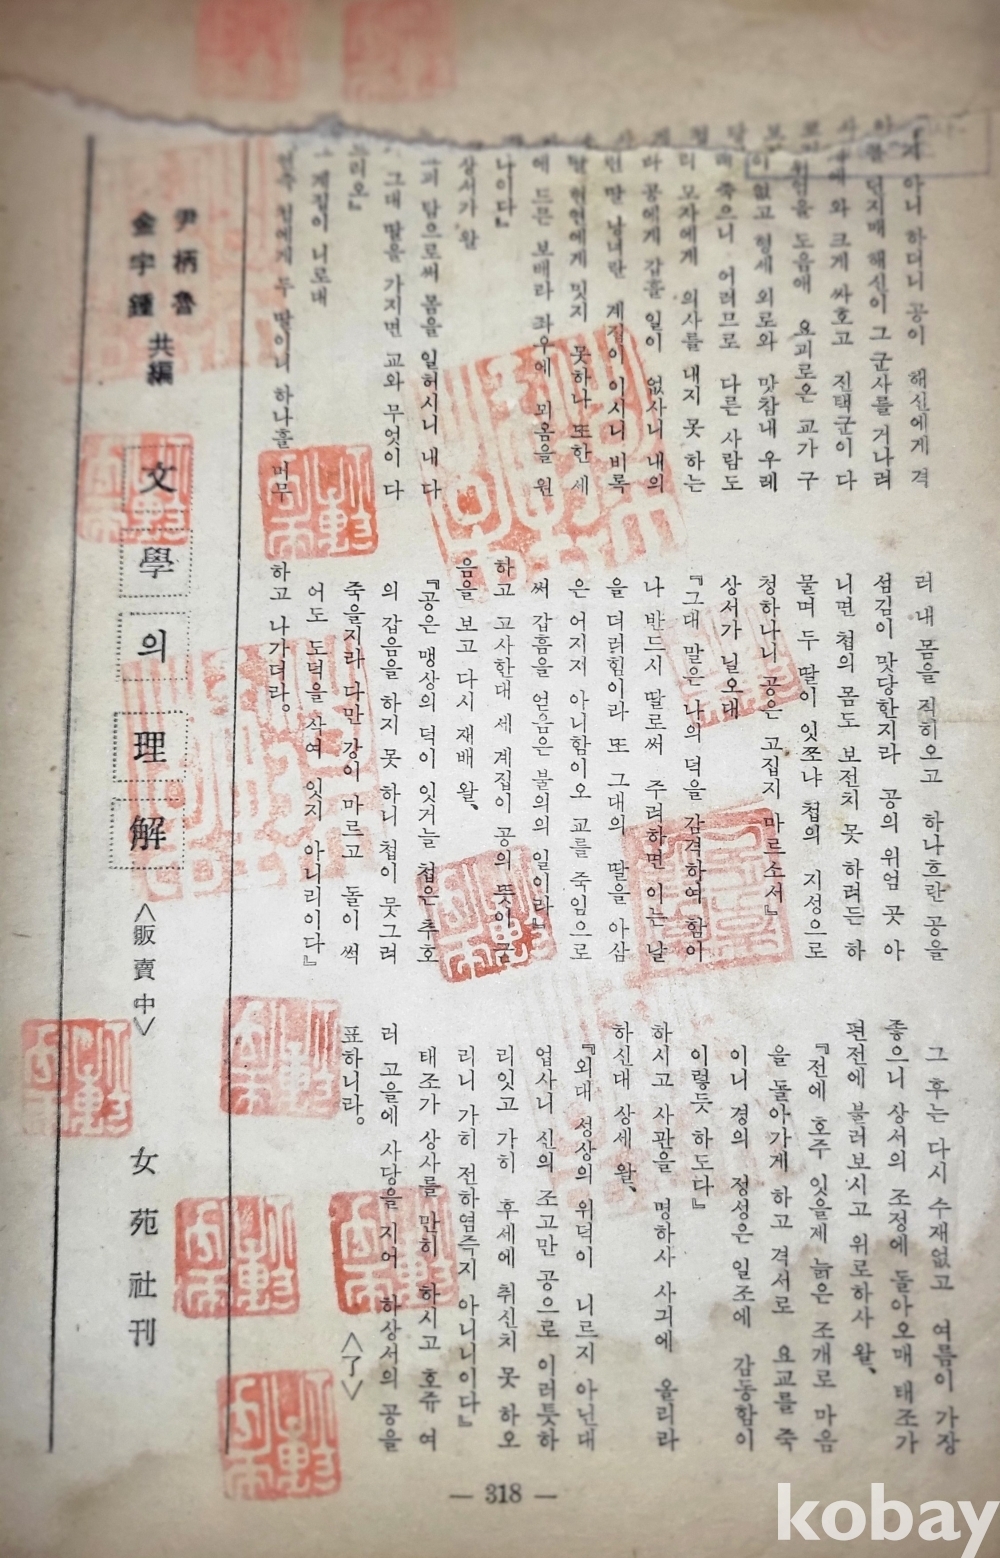 아니 하더니 공이 해신에게 격
던지매 해신이 그 군사를 거나려
와 크게 싸호고 진택군이 다
도음애 요괴로온 교가 구
없고 형세 외로와 맛참내 우레
죽으니 어려므로 다른 사람도
리 모자에게 의사를 내지 못 하는
라 공에게 갑흘 일이 없사니 내의
말 남녀란 계집이 이시니 비록
밋지 못하나 또한 세
에 드믄 보배라 좌우에 뫼옴을 원
나이다』
상서가 왈
탐으로써 몸을 일허시니 내 다
그대 딸을 가지면 교와 무엇이 다
르리오』
계집이 니로대
두 딸이니 하나흘 머무
러 내 몸을 직히오고 하나흐란 공을
섬김이 맛당한지라 공의 위엄 곳 아
니면 첩의 몸도 보전치 못 하려든 하
물며 두 딸이 잇쪼냐 첩의 지성으로
청하나니 공은 고집지 마르소서』
상서가 닐오대
『그대 말은 나의 덕을 감격하여 함이
나 반드시 딸로써 주려하면 이는 날
을 더러힘이라 또 그대의 딸을 아삼
은 어지저 아니함이오 교를 죽임으로
써 갑흠을 얻음은 불의의 일이라』
하고 고사한대 세 계집이 공의 뜻이 굳
음을 보고 다시 재배 왈、
『공은 맹상의 덕이 잇거늘 첩은 추호
의 갑음을 하지 못 하니 첩이 뭇그려
죽을지라 다만 강이 마르고 돌이 썩
어도 도덕을 삭여 잇지 아니리이다』
하고 나가더라。
그 후는 다시 수재없고 여름이 가장
좋으니 상서의 조정에 돌아오매 태조가
편전에 불러보시고 위로하사 왈、
『전에 호주 잇을제 늙은 조개로 마음
을 돌아가게 하고 격서로 요교를 죽
이니 경의 정성은 일조에 감동함이
이렇듯 하도다』
하시고 사관을 명하사 사긔에 올리라
하신대 상세 왈、
『외대 성상의 위덕이 니르지 아닌대
업사니 신의 조고만 공으로 이러틋하
리잇고 가히 후세에 취신치 못 하오
리니 가히 전하염즉지 아니니이다』
태조가 상사를 만히 하시고 호쥬 여
러 고을에 사당을 지어 하상서의 공을
표하니라。
<了>
尹柄魯
金宇鍾 共編
文學의理解
<販賣中>
女苑社刊
— 318 —
kobay